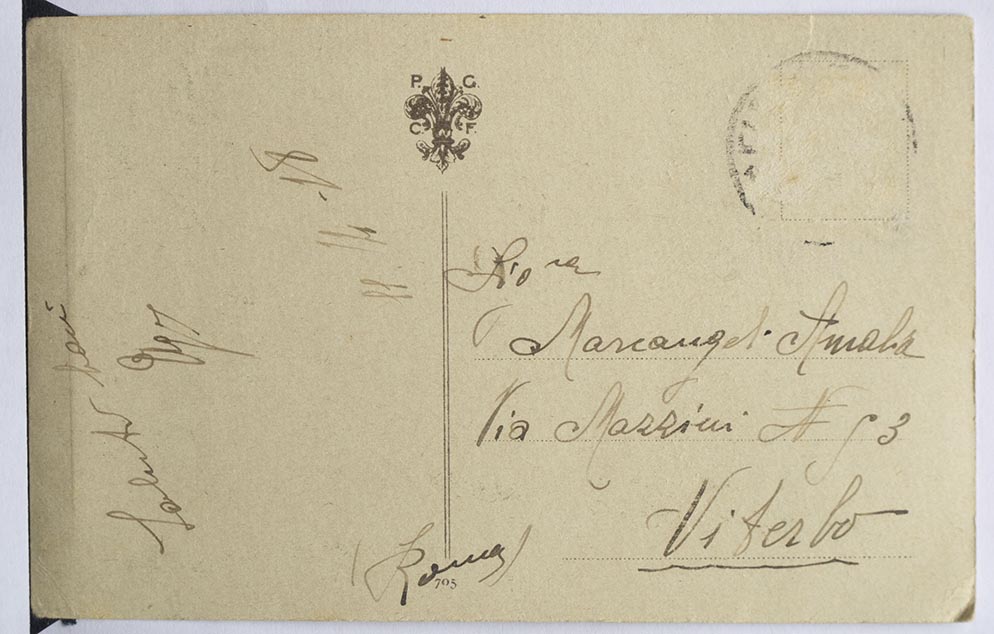 P. G.
C. F.
11 - 11 - 18
Saluti baci
Sig.ra
Marcangeli Amalia
Via Mazzini N 93
Viterbo
(Roma)
705